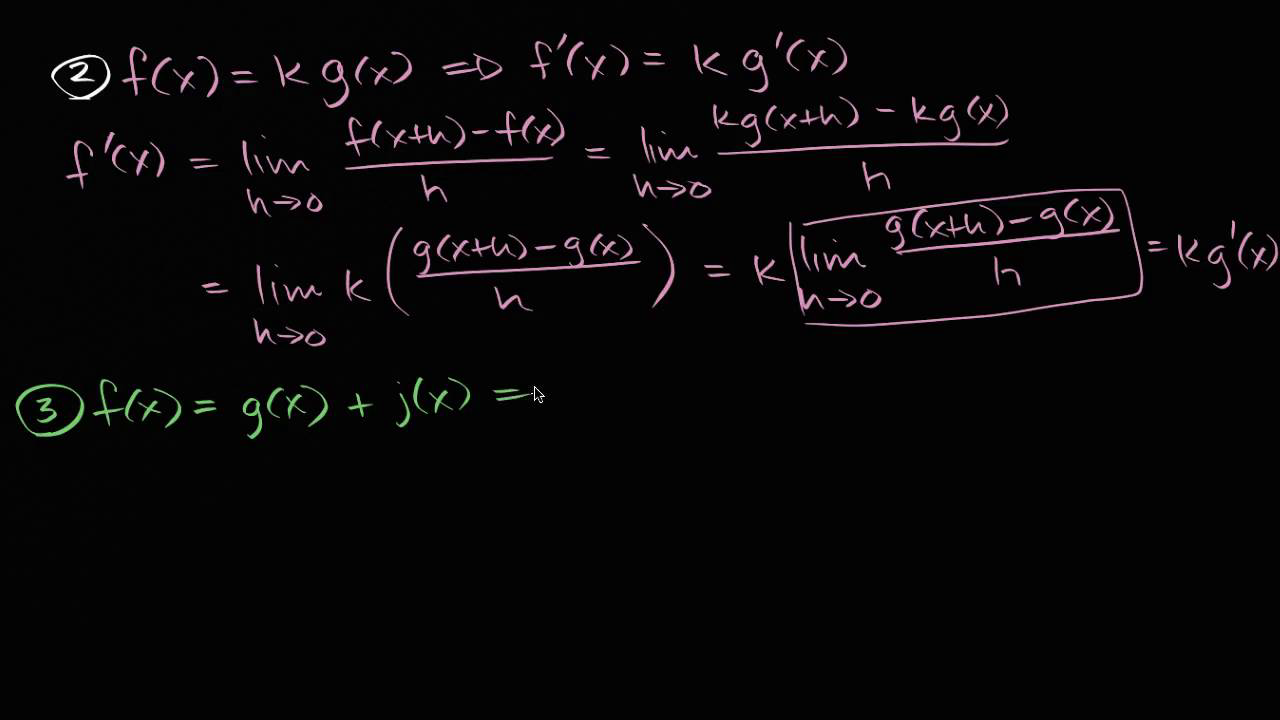 ② f(x) = k g(x) ⇒ f'(x) = k g'(x)
f'(x) = lim h→0 f(x+h) - f(x) / h = lim h→0 kg(x+h) - kg(x) / h
= lim h→0 k ( g(x+h) - g(x) / h ) = k lim h→0 g(x+h) - g(x) / h = k g'(x)
③ f(x) = g(x) + j(x) =